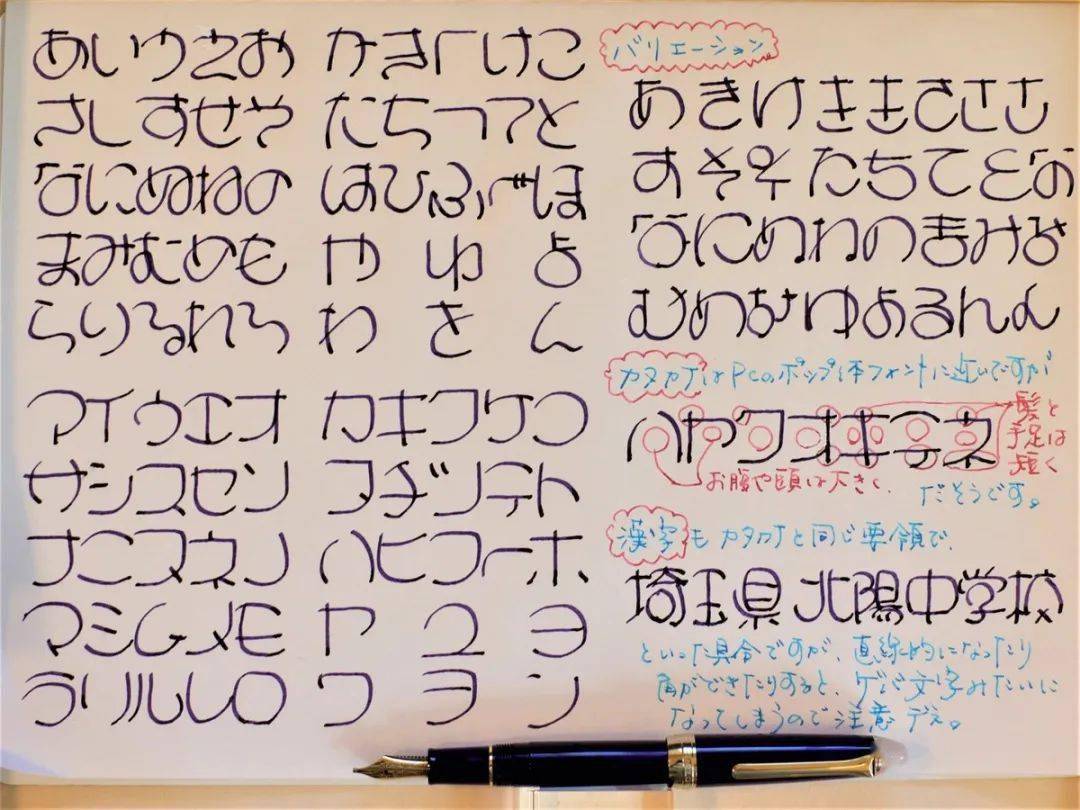 あいうえお かきくけこ
さしすせそ たちつてと
なにぬねの はひふへほ
まみむめも や ゆ よ
らりるれろ わ を ん
アイウエオ カキクケコ
サシスセソ タチツテト
ナニヌネノ ハヒフヘホ
マミムメモ ヤ ユ ヨ
ラリルレロ ワ ヲ ン
バリエーション
あきけききささき
すそそたちてとな
なにぬねのまみよ
むめなゆよるれん
カタカナはPCのポップ体フォントに近いですが
ハヤクオキテネ
髪と
手足は
短く
お腹や頭は大きく、
だそうです。
漢字もカタカナと同じ要領で、
埼玉県 北陽中学校
といった具合ですが、直線的になったり
角ができたりすると、ゲバ文字みたいに
なってしまうので注意デス。